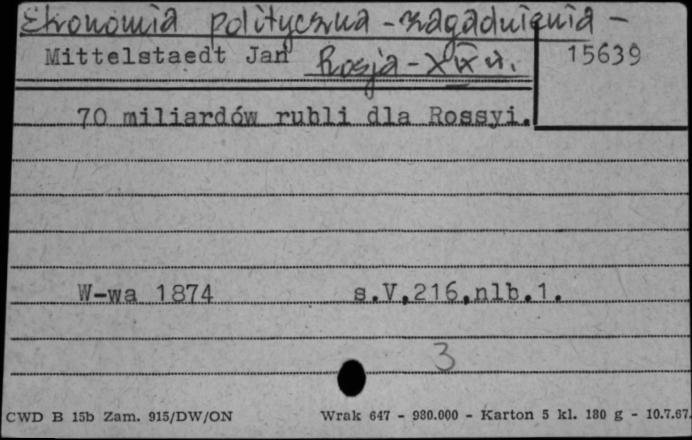 Ekonomia polityczna - zagadnienia -
Mittelstaedt Jan Rosja - XIX w. 15639
70 miliardów rubli dla Rossyi.
W-wa 1874 s.V,216,nlb.1.
3
CWD B 15b Zam. 915/DW/ON Wrak 647 - 980.000 - Karton 5 kl. 180 g - 10.7.67.